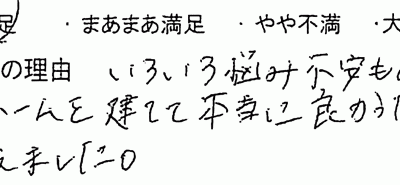 足 ・まあまあ満足 ・やや不満 ・大
の理由 いろいろ悩み不安も
ームを建てて本当に良かった
えました。